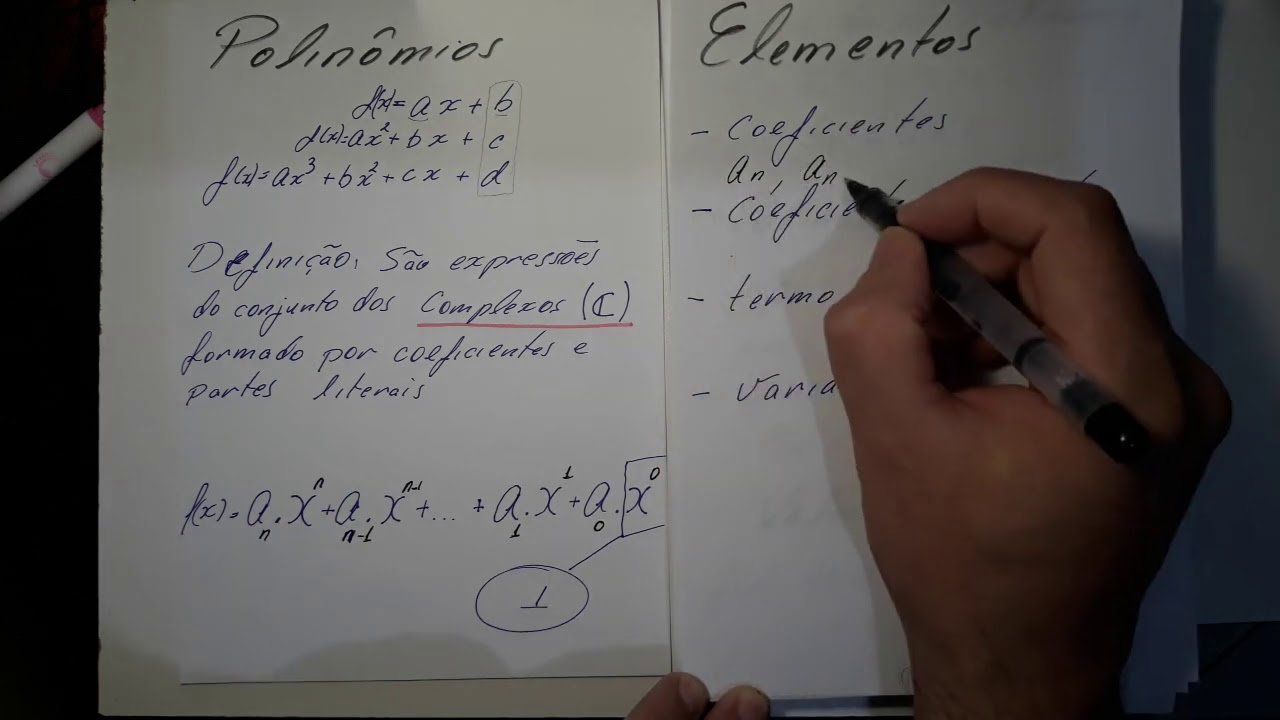 Polinômios
f(x)= ax + b
f(x)=ax² + bx + c
f(x)=ax³ + bx² + cx + d
Definição: São expressões
do conjunto dos Complexos (ℂ)
formado por coeficientes e
partes literais
f(x)= aₙ.xⁿ + aₙ₋₁.xⁿ⁻¹ + ... + a₁.x¹ + a₀.x⁰
1
Elementos
- Coeficientes
aₙ, aₙ
-
- termo
-